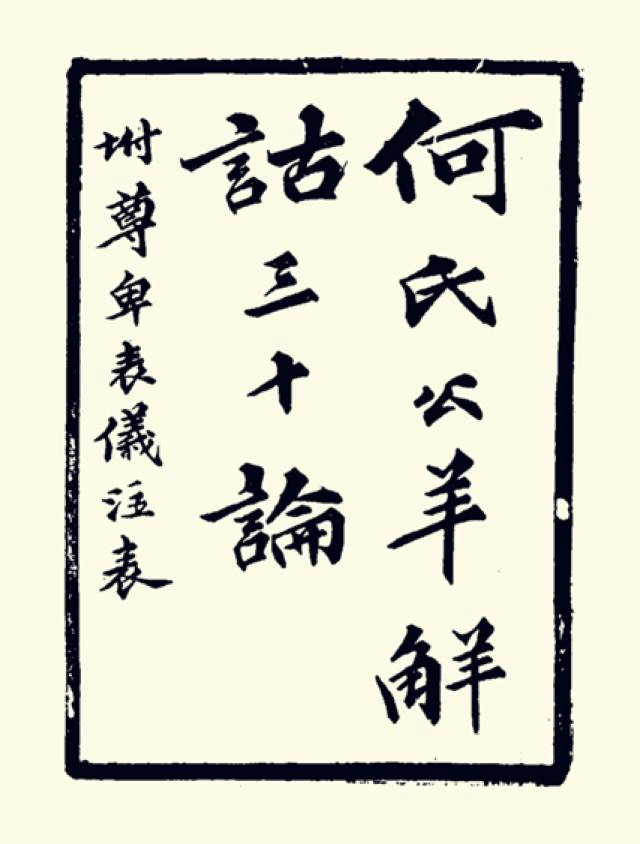 何氏公羊解
詁三十論
坿尊卑表儀注表